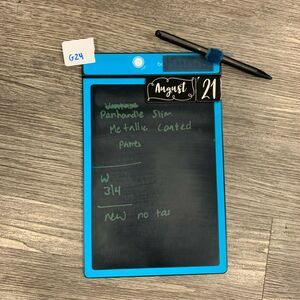 G24
August 21
Panhandle Slim
Metallic Coated
Pants
W
3/4
new no tas